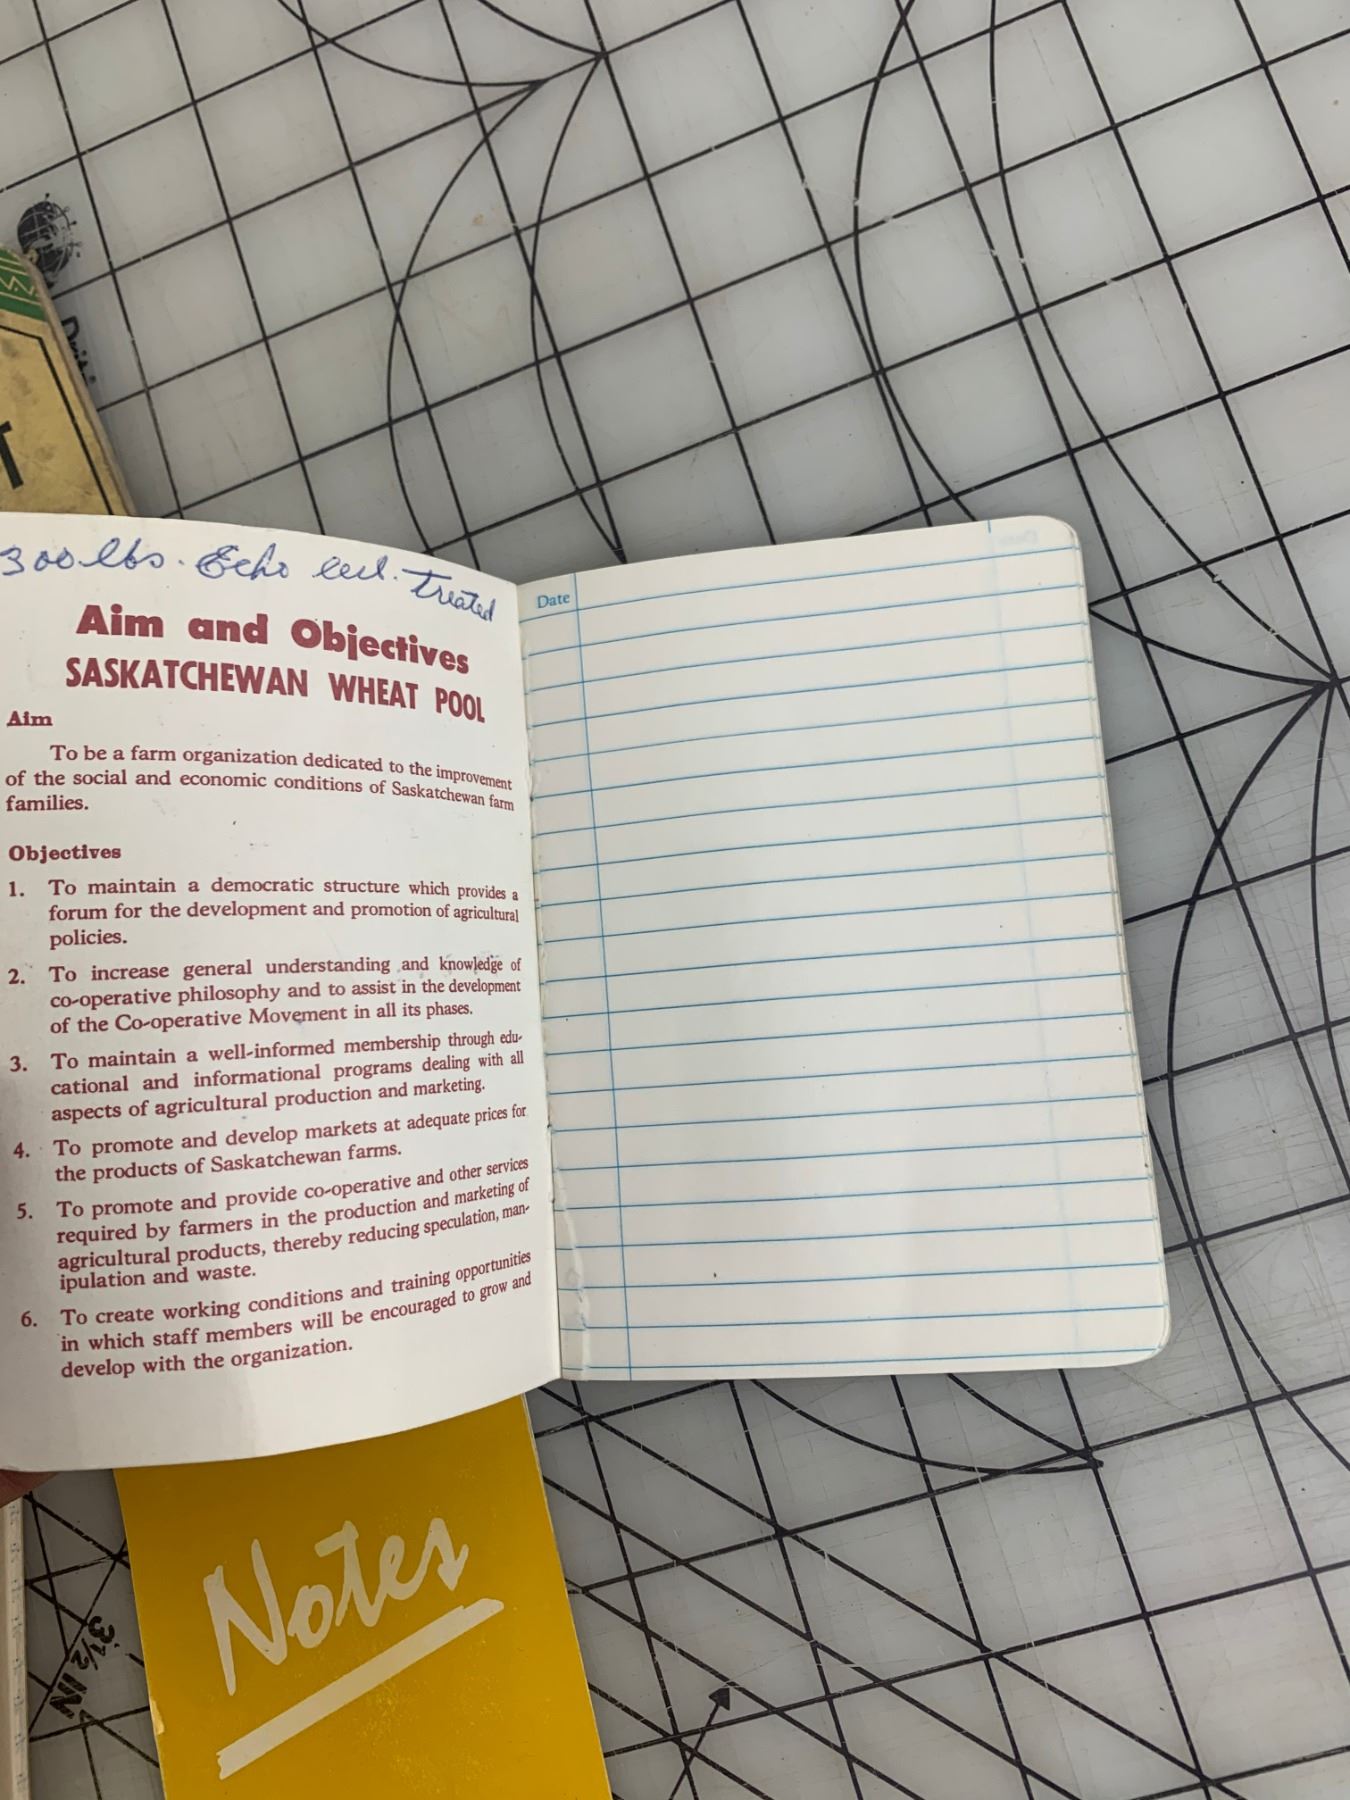 300 lbs. Echo cert. treated
Aim and Objectives
SASKATCHEWAN WHEAT POOL
Aim
To be a farm organization dedicated to the improvement
of the social and economic conditions of Saskatchewan farm
families.
Objectives
1. To maintain a democratic structure which provides a
forum for the development and promotion of agricultural
policies.
2. To increase general understanding and knowledge of
co-operative philosophy and to assist in the development
of the Co-operative Movement in all its phases.
3. To maintain a well-informed membership through edu-
cational and informational programs dealing with all
aspects of agricultural production and marketing.
4. To promote and develop markets at adequate prices for
the products of Saskatchewan farms.
5. To promote and provide co-operative and other services
required by farmers in the production and marketing of
agricultural products, thereby reducing speculation, man-
ipulation and waste.
6. To create working conditions and training opportunities
in which staff members will be encouraged to grow and
develop with the organization.
Date
Notes
3½ IN
T